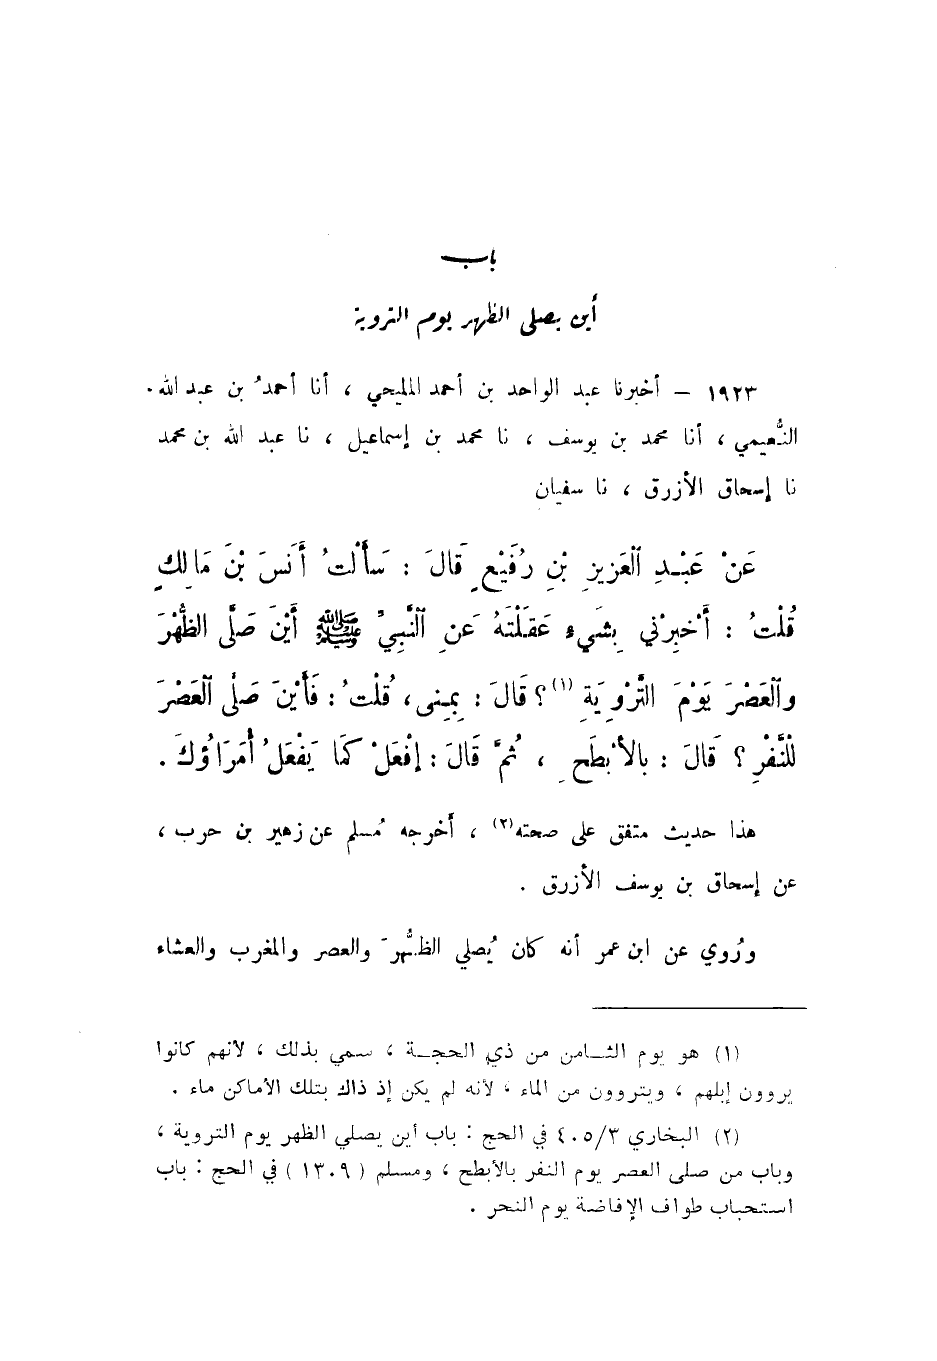 باب
أين يصلى الظهر يوم التروية
١٩٢٣ – أخبرنا عبد الواحد بن أحمد المليحي ، أنا أحمدُ بن عبد الله .
النُّعيمي ، أنا محمد بن يوسف ، نا محمد بن إسماعيل ، نا عبد الله بن محمد
نا إسحاق الأزرق ، نا سفيان
عَنْ عَبْدِ الْعَزِيزِ بْنِ رُفَيْعٍ قَالَ : سَأَلْتُ أَنَسَ بْنَ مَالِكٍ
قُلْتُ : أَخْبِرْنِي بِشَيْءٍ عَقَلْتَهُ عَنِ النَّبِيِّ ﷺ أَيْنَ صَلَّى الظُّهْرَ
وَالْعَصْرَ يَوْمَ التَّرْوِيَةِ (١) ؟ قَالَ : بِمِنى ، قُلْتُ : فَأَيْنَ صَلَّى الْعَصْرَ
لِلنَّفْرِ ؟ قَالَ : بِالأَبْطَحِ ، ثُمَّ قَالَ : إفْعَلْ كَمَا يَفْعَلُ أُمَرَاؤُكَ .
هذا حديث متفق على صحته (٢) ، أخرجه مُسلم عن زهير بن حرب ،
عن إسحاق بن يوسف الأزرق .
ورُوي عن ابن عمر أنه كان يُصلي الظُّهرَ والعصر والمغرب والعشاء
(١) هو يوم الثامن من ذي الحجة ، سمي بذلك ، لأنهم كانوا
يروون إبلهم ، ويتروون من الماء ، لأنه لم يكن إذ ذاك بتلك الأماكن ماء .
(٢) البخاري ٤٠٥/٣ في الحج : باب أين يصلي الظهر يوم التروية ،
وباب من صلى العصر يوم النفر بالأبطح ، ومسلم ( ١٣٠٩ ) في الحج : باب
استحباب طواف الإفاضة يوم النحر .